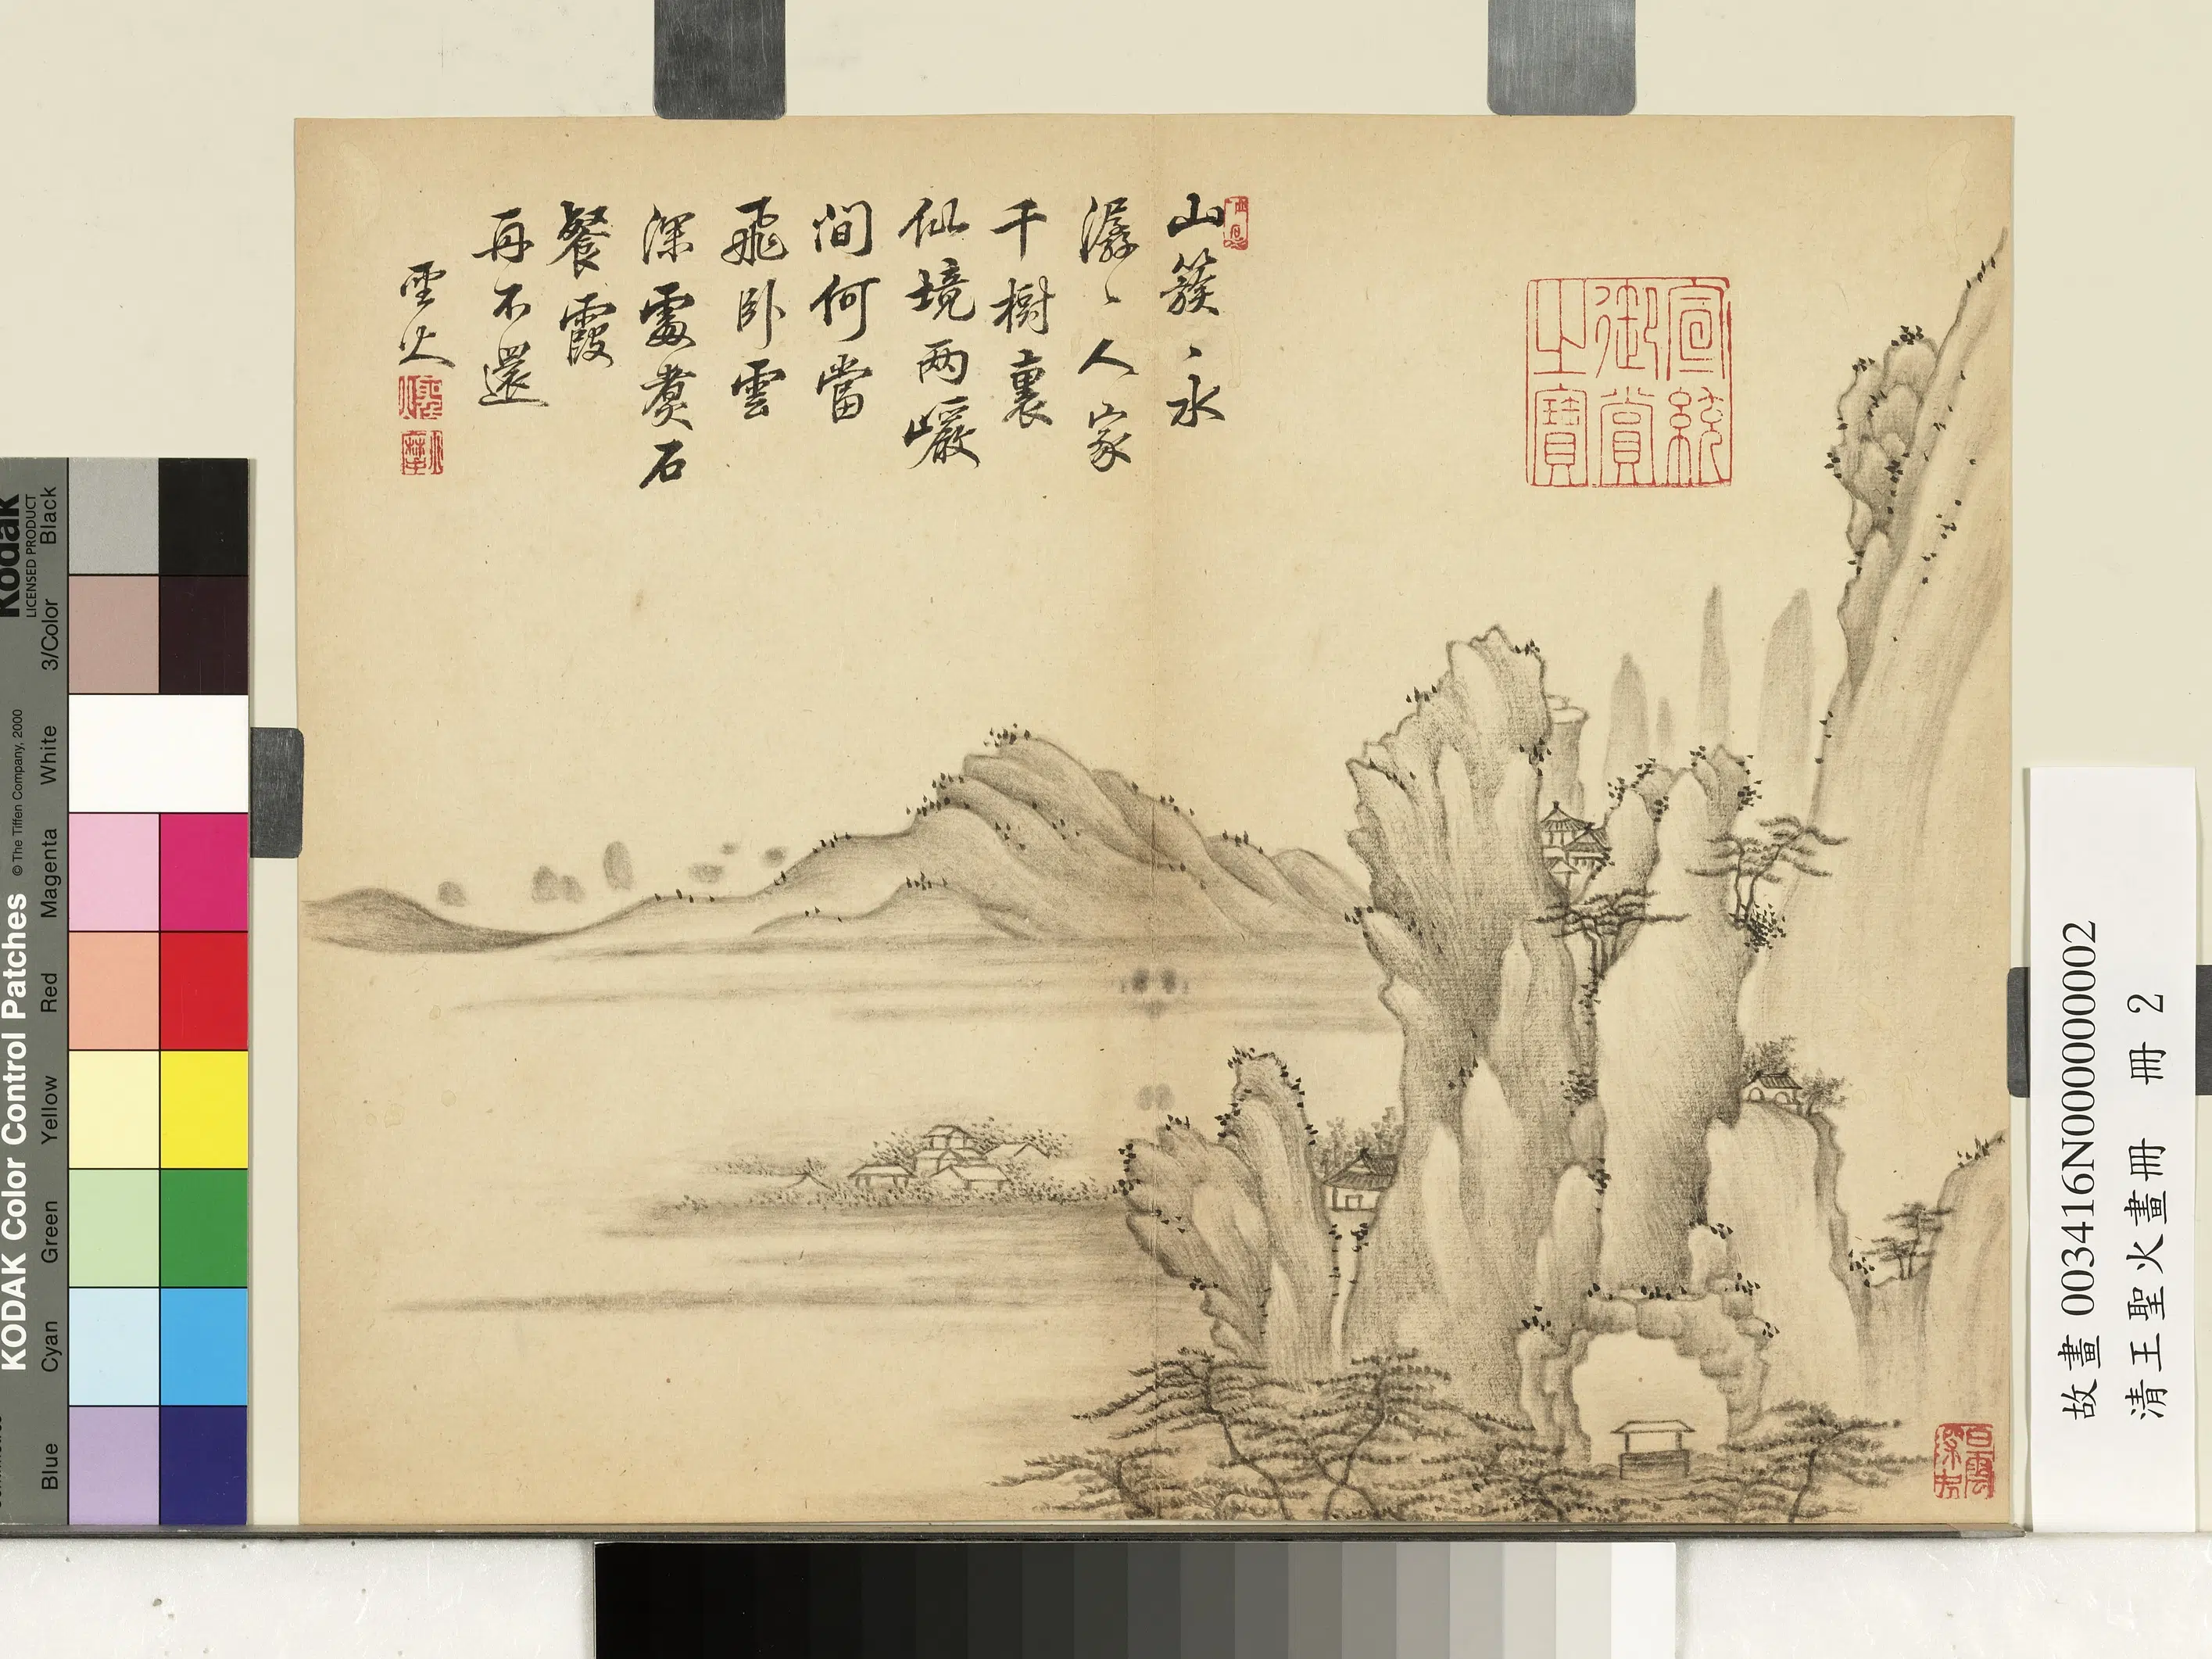 山簇〻水
潺〻人家
千樹裏
仙境两巖
間何當
飛卧雲
深處煑石
餐霞
再不還
聖火
宣統
御賞
之寶
KODAK Color Control Patches © The Tiffen Company, 2000
Kodak
LICENSED PRODUCT
Blue Cyan Green Yellow Red Magenta White 3/Color Black
故畫 003416N000000002
清王聖火畫冊 冊 2